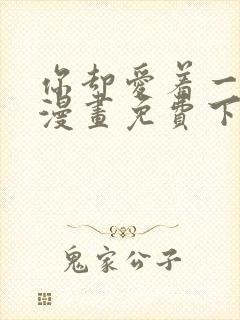 你却愛着一
漫畫免費下
鬼家公子